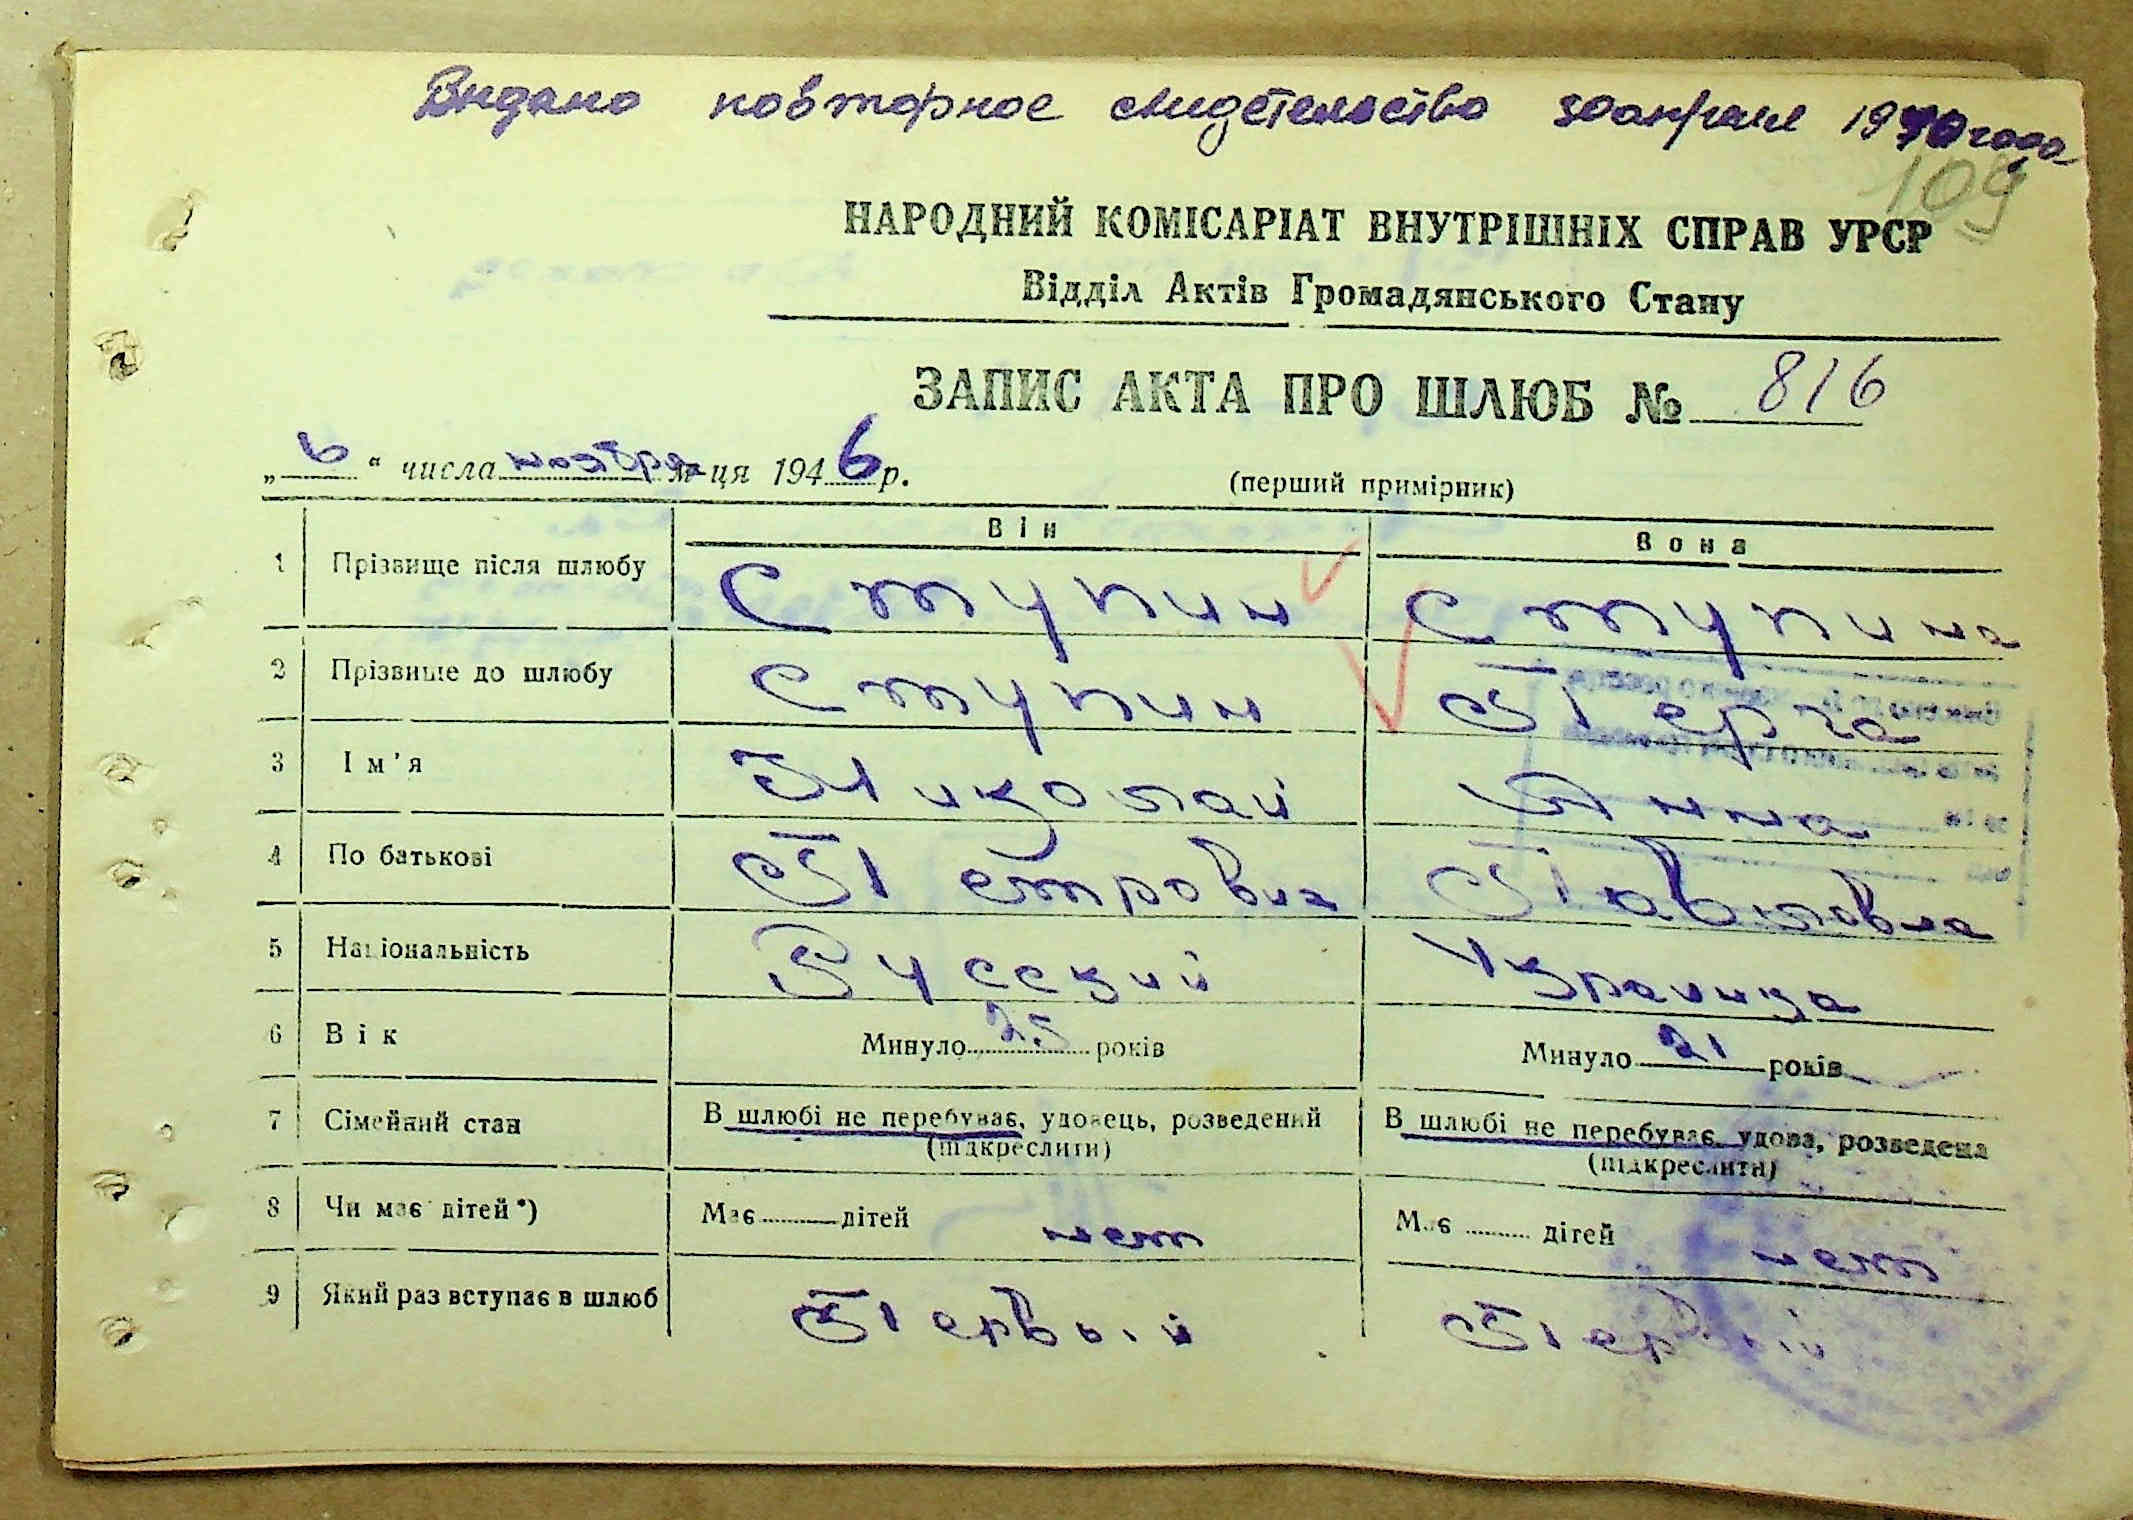 Видано повторное свидетельство 30 апреля 1970 года
109
НАРОДНИЙ КОМІСАРІАТ ВНУТРІШНІХ СПРАВ УРСР
Відділ Актів Громадянського Стану
ЗАПИС АКТА ПРО ШЛЮБ № 816
„ 6 “ числа ноября м-ця 1946 р. (перший примірник)
Він Вона
1 Прізвище після шлюбу Ступин Ступина
2 Прізвище до шлюбу Ступин Перга
3 Ім'я Николай Анна
4 По батькові Петрович Павловна
5 Національність Русский Украинка
6 Вік Минуло 25 років Минуло 21 років
7 Сімейний стан В шлюбі не перебуває, удовець, розведений В шлюбі не перебуває, удова, розведена
(підкреслити) (підкреслити)
8 Чи має дітей*) Має дітей нет Має дітей нет
9 Який раз вступає в шлюб Первый Первый